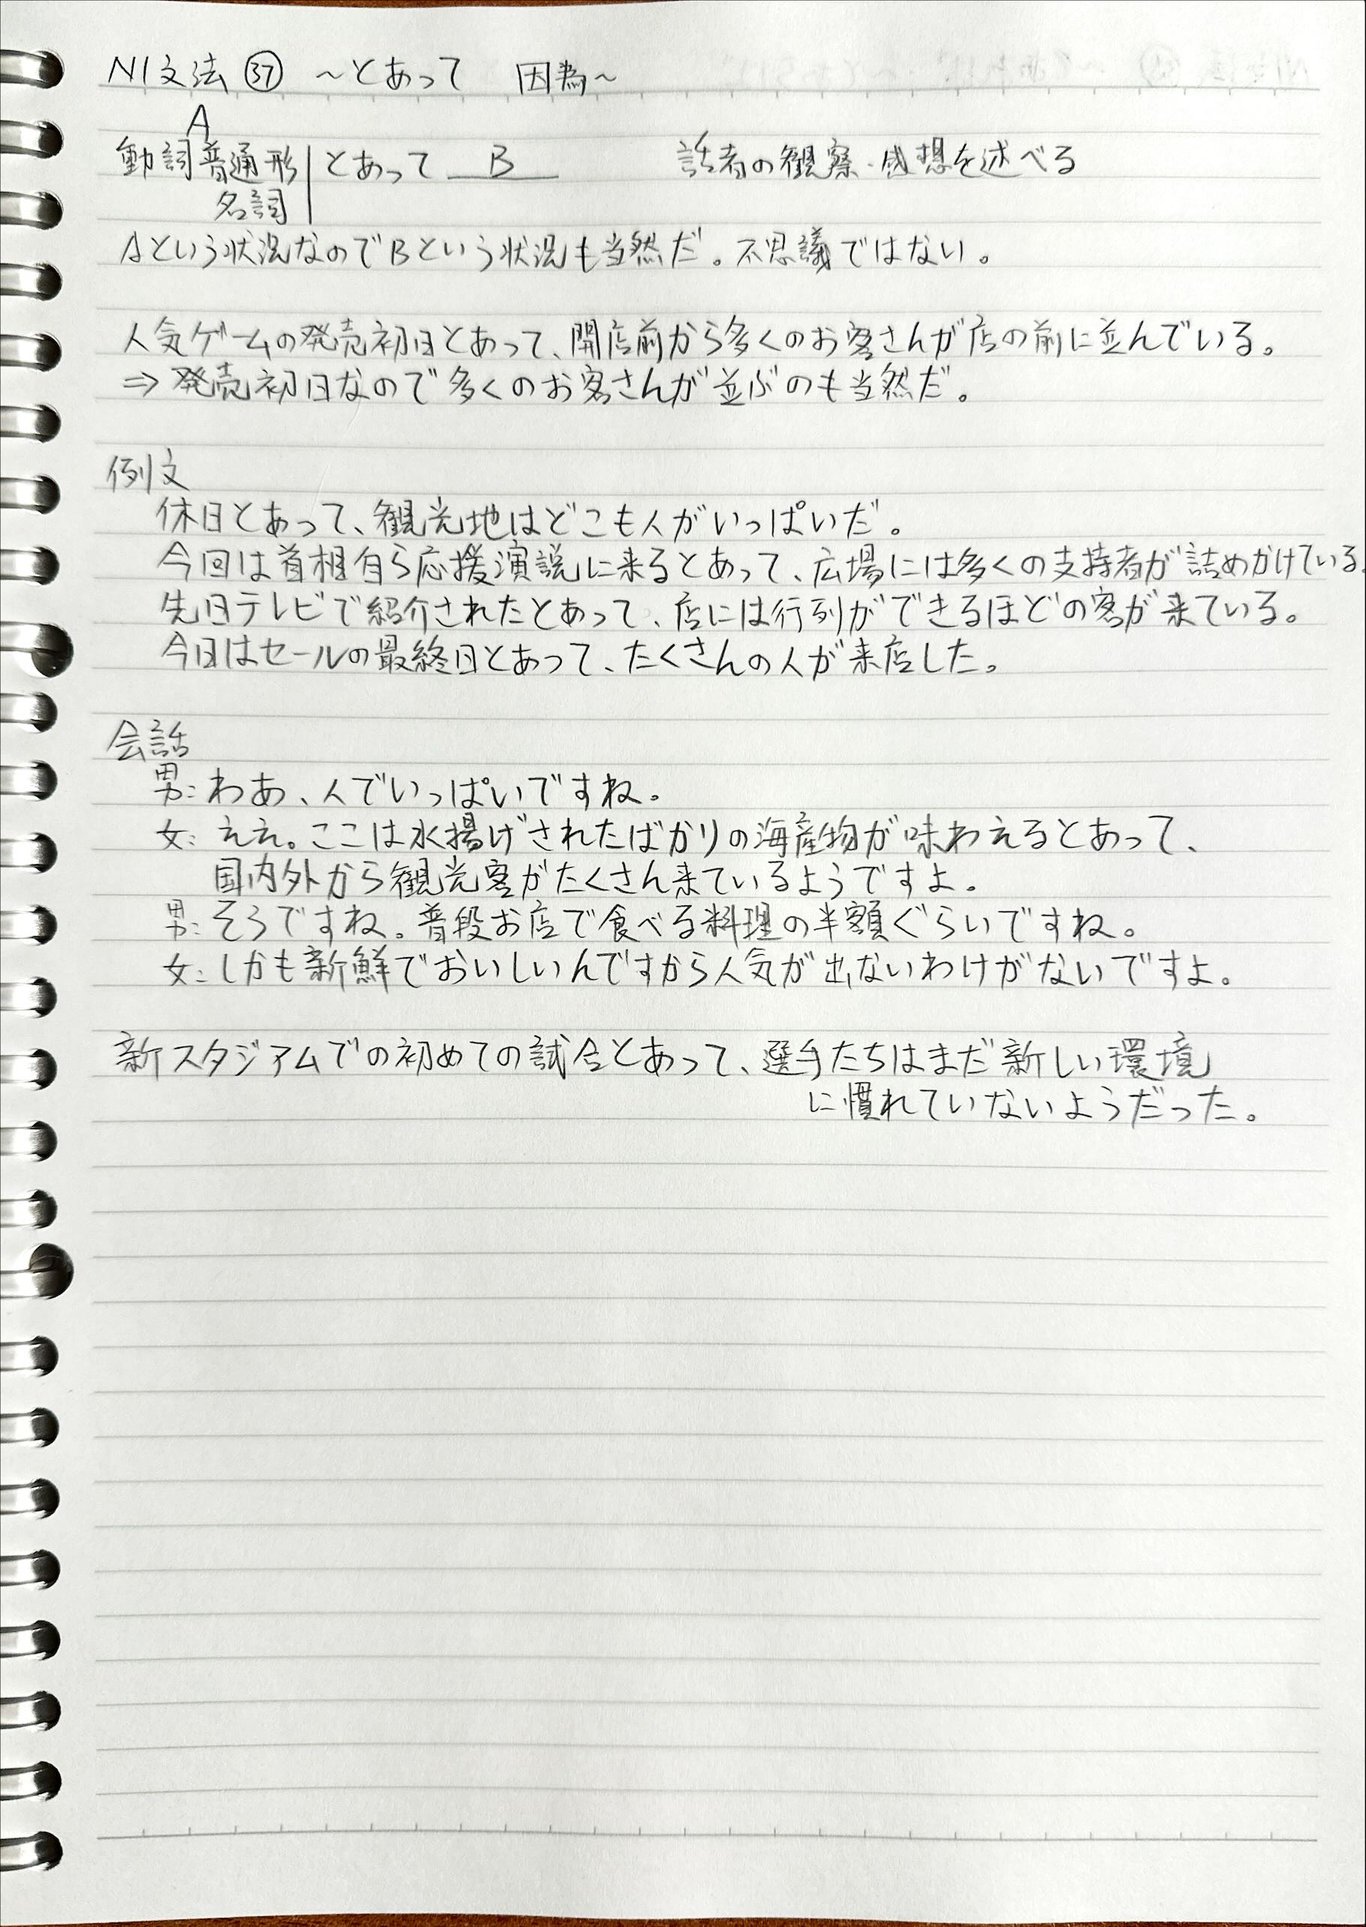 N1文法 ㊲ ～とあって 因為～
A
動詞普通形 とあって B 話者の観察・感想を述べる
名詞
Aという状況なのでBという状況も当然だ。不思議ではない。
人気ゲームの発売初日とあって、開店前から多くのお客さんが店の前に並んでいる。
⇒ 発売初日なので多くのお客さんが並ぶのも当然だ。
例文
休日とあって、観光地はどこも人がいっぱいだ。
今回は首相自ら応援演説に来るとあって、広場には多くの支持者が詰めかけている。
先日テレビで紹介されたとあって、店には行列ができるほどの客が来ている。
今日はセールの最終日とあって、たくさんの人が来店した。
会話
男：わあ、人でいっぱいですね。
女：ええ。ここは水揚げされたばかりの海産物が味わえるとあって、
国内外から観光客がたくさん来ているようですよ。
男：そうですね。普段お店で食べる料理の半額ぐらいですね。
女：しかも新鮮でおいしいんですから人気が出ないわけがないですよ。
新スタジアムでの初めての試合とあって、選手たちはまだ新しい環境
に慣れていないようだった。